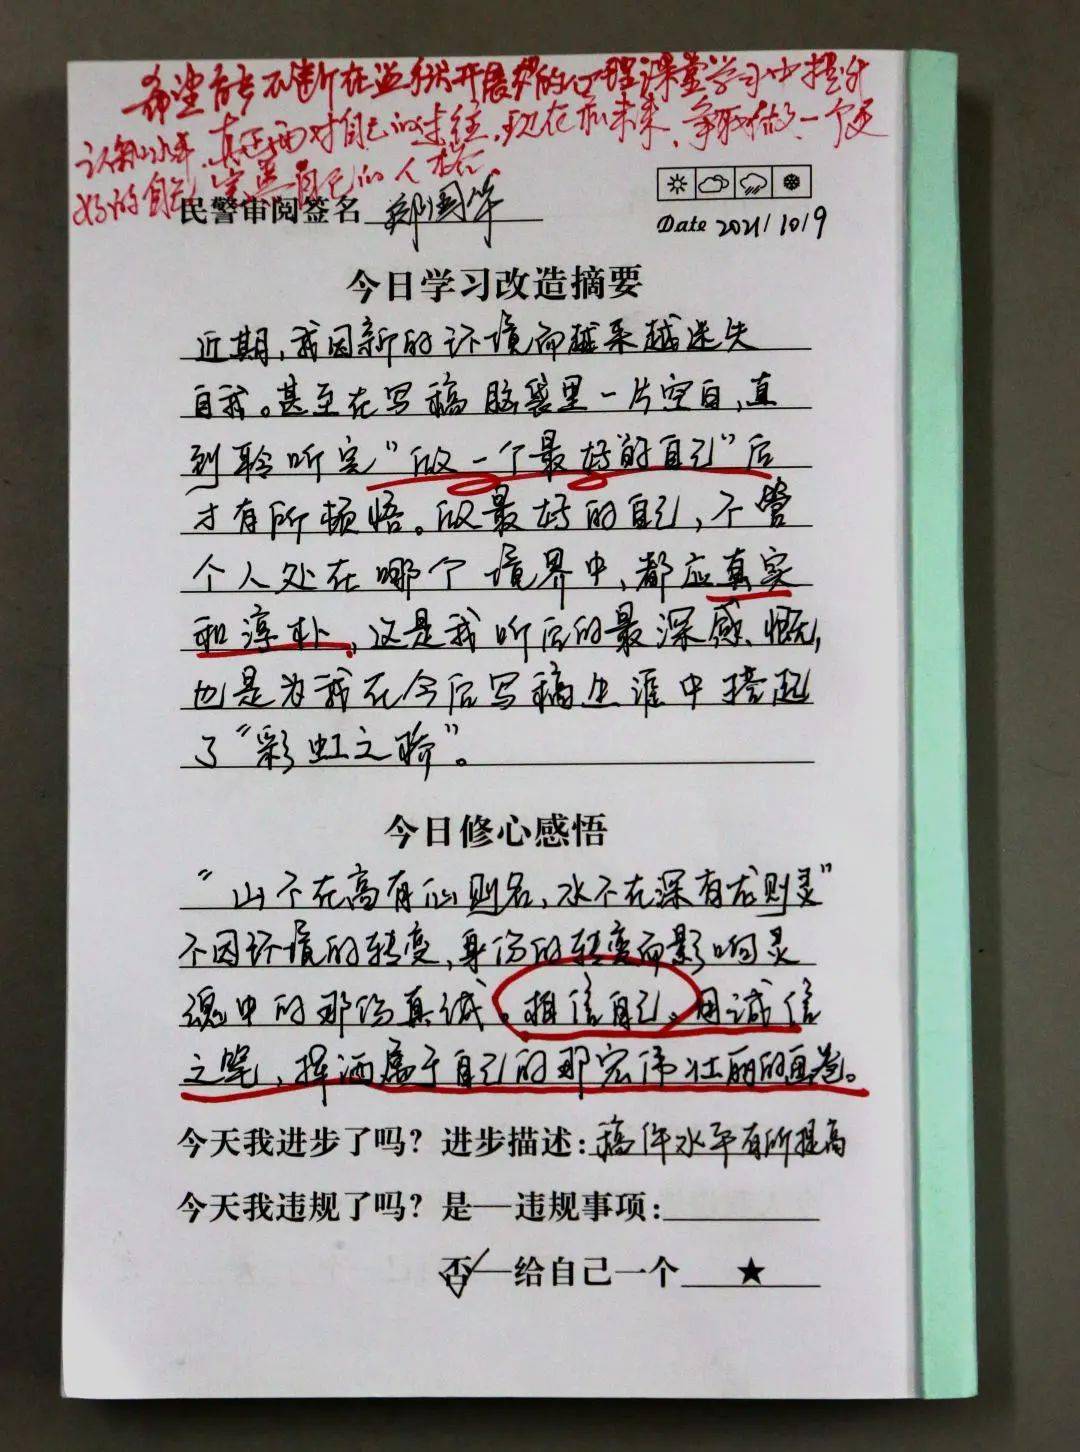 希望你不断在监狱开展的心理课堂学习中提升
认知水平,真正面对自己的过往、现在和未来,争取做一个更
好的自己,完善自己的人格
民警审阅签名
Date 2021/10/9
今日学习改造摘要
近期,我因新的环境而越来越迷失
自我。甚至在写稿脑袋里一片空白,直
到聆听完"做一个最好的自己"后
才有所顿悟。做最好的自己,不管
个人处在哪个境界中,都应真实
和淳朴,这是我听后的最深感慨,
也是为我在今后写稿生涯中搭起
了"彩虹之桥"。
今日修心感悟
"山不在高有仙则名,水不在深有龙则灵"
不因环境的转变,身份的转变而影响灵
魂中的那份真诚。相信自己。用诚信
之笔,挥洒属于自己的那宏伟壮丽的画卷。
今天我进步了吗?进步描述:稿件水平有所提高
今天我违规了吗?是—违规事项:
否—给自己一个 ★